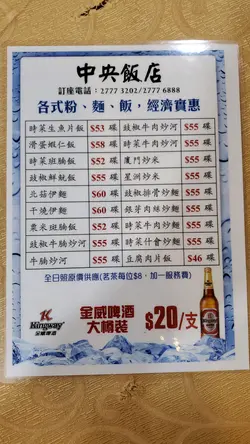 中央飯店
訂座電話：2777 3202/2777 6888
各式粉、麵、飯，經濟實惠
時菜生魚片飯 $53 碟 豉椒牛肉炒河 $55 碟
滑蛋蝦仁飯 $58 碟 時菜牛肉炒河 $55 碟
時菜斑腩飯 $52 碟 廈門炒米 $55 碟
豉椒鮮魷飯 $55 碟 星洲炒米 $55 碟
北菇伊麵 $60 碟 豉椒排骨炒麵 $55 碟
干燒伊麵 $60 碟 銀芽肉絲炒麵 $55 碟
粟米斑腩飯 $52 碟 時菜牛肉炒麵 $55 碟
豉椒牛腩炒河 $55 碟 時菜什會炒麵 $55 碟
牛腩炒河 $55 碟 豆腐肉片飯 $46 碟
全日照原價供應(茗茶每位$8，加一服務費)
K
Kingway
金威啤酒
金威啤酒
大樽裝
$20/支